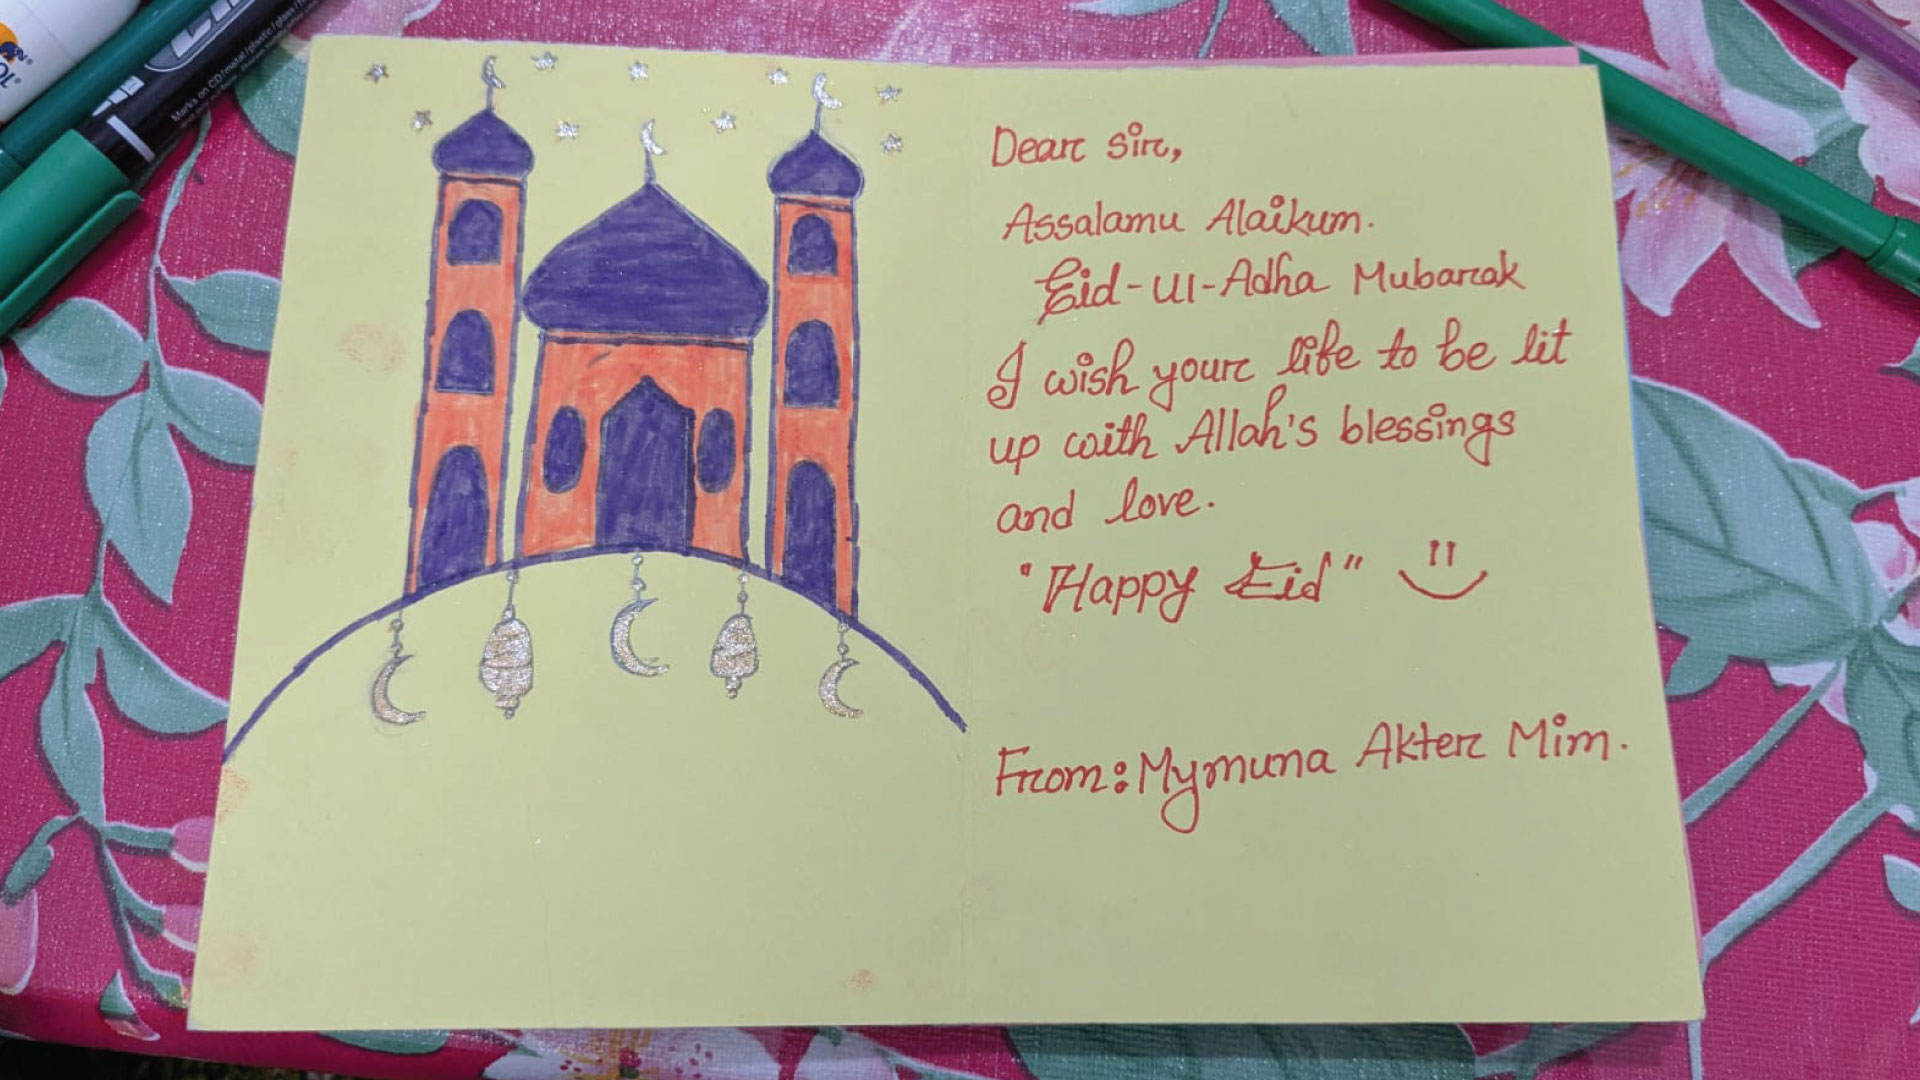 Marks on CD/metal/plastic/glass/
Dear Sir,
Assalamu Alaikum.
Eid-Ul-Adha Mubarak
I wish your life to be lit
up with Allah's blessings
and love.
"Happy Eid"
From: Mymuna Akter Mim.